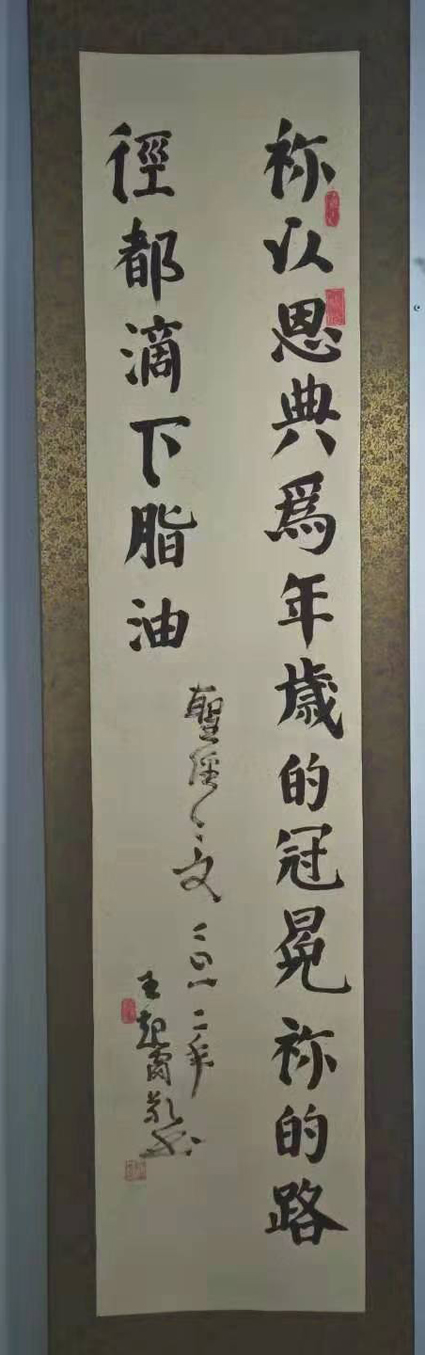 祢以恩典爲年歲的冠冕祢的路
徑都滴下脂油
聖經之文二〇一二年
王起